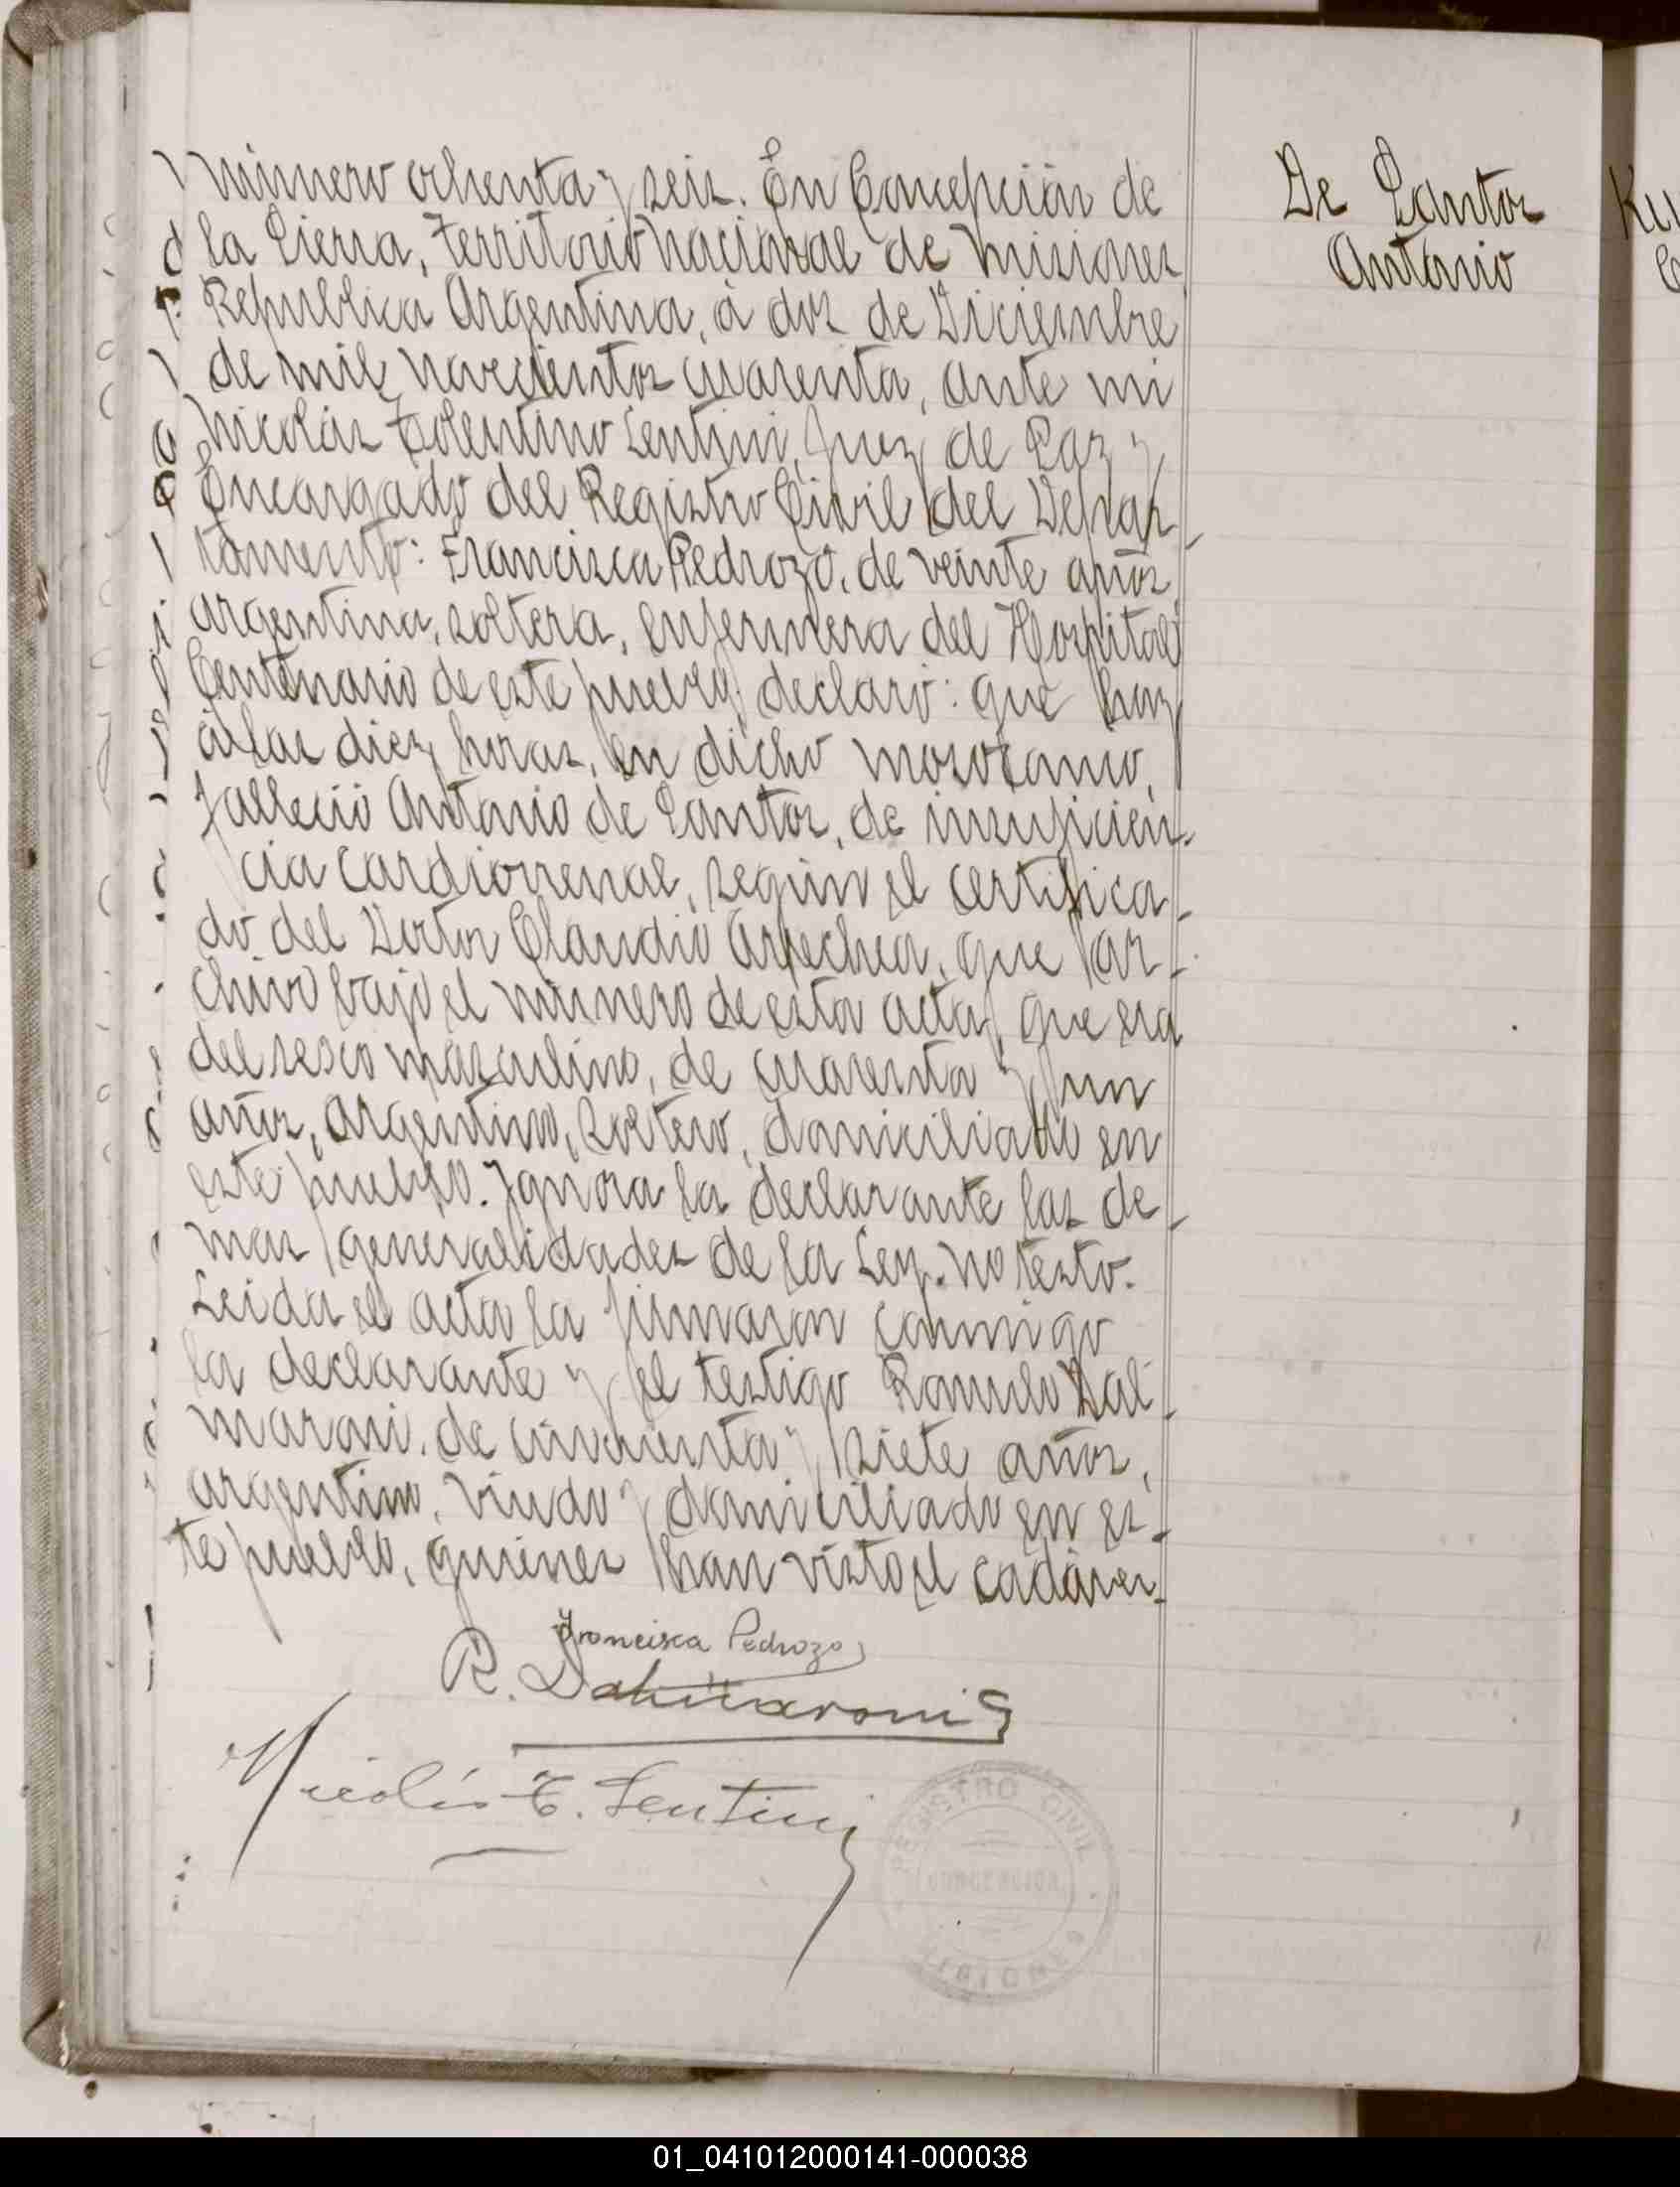 Número ochenta y seis. En Concepción de
la Sierra, Territorio Nacional de Misiones
República Argentina, à dos de Diciembre
de mil novecientos cuarenta, ante mi
Nicolás Tolentino Lentini, Juez de Paz y
Encargado del Registro Civil del Depar-
tamento: Francisca Pedrozo, de veinte años,
argentina, soltera, enfermera del Hospital
Centenario de este pueblo, declaró: que hoy
à las diez horas, en dicho nosocomio,
falleció Antonio de Santos, de insuficien-
cia cardiorrenal, según el certifica-
do del Doctor Claudio Arrechea, que ar-
chivo bajo el número de esta acta, que era
del sexo masculino, de cuarenta y un
años, argentino, soltero, domiciliado en
este pueblo. Ignora la declarante las de-
mas generalidades de la Ley. No testo.
Leida el acta la firmaron conmigo
la declarante y el testigo Romulo Dal-
maroni, de cincuenta y siete años,
argentino, viudo y domiciliado en es-
te pueblo, quienes han visto el cadáver.
Francisca Pedrozo
R. Dalmaroni
Nicolás T. Lentini
REGISTRO CIVIL
CONCEPCION
MISIONES
De Santos
Antonio
01_041012000141-000038